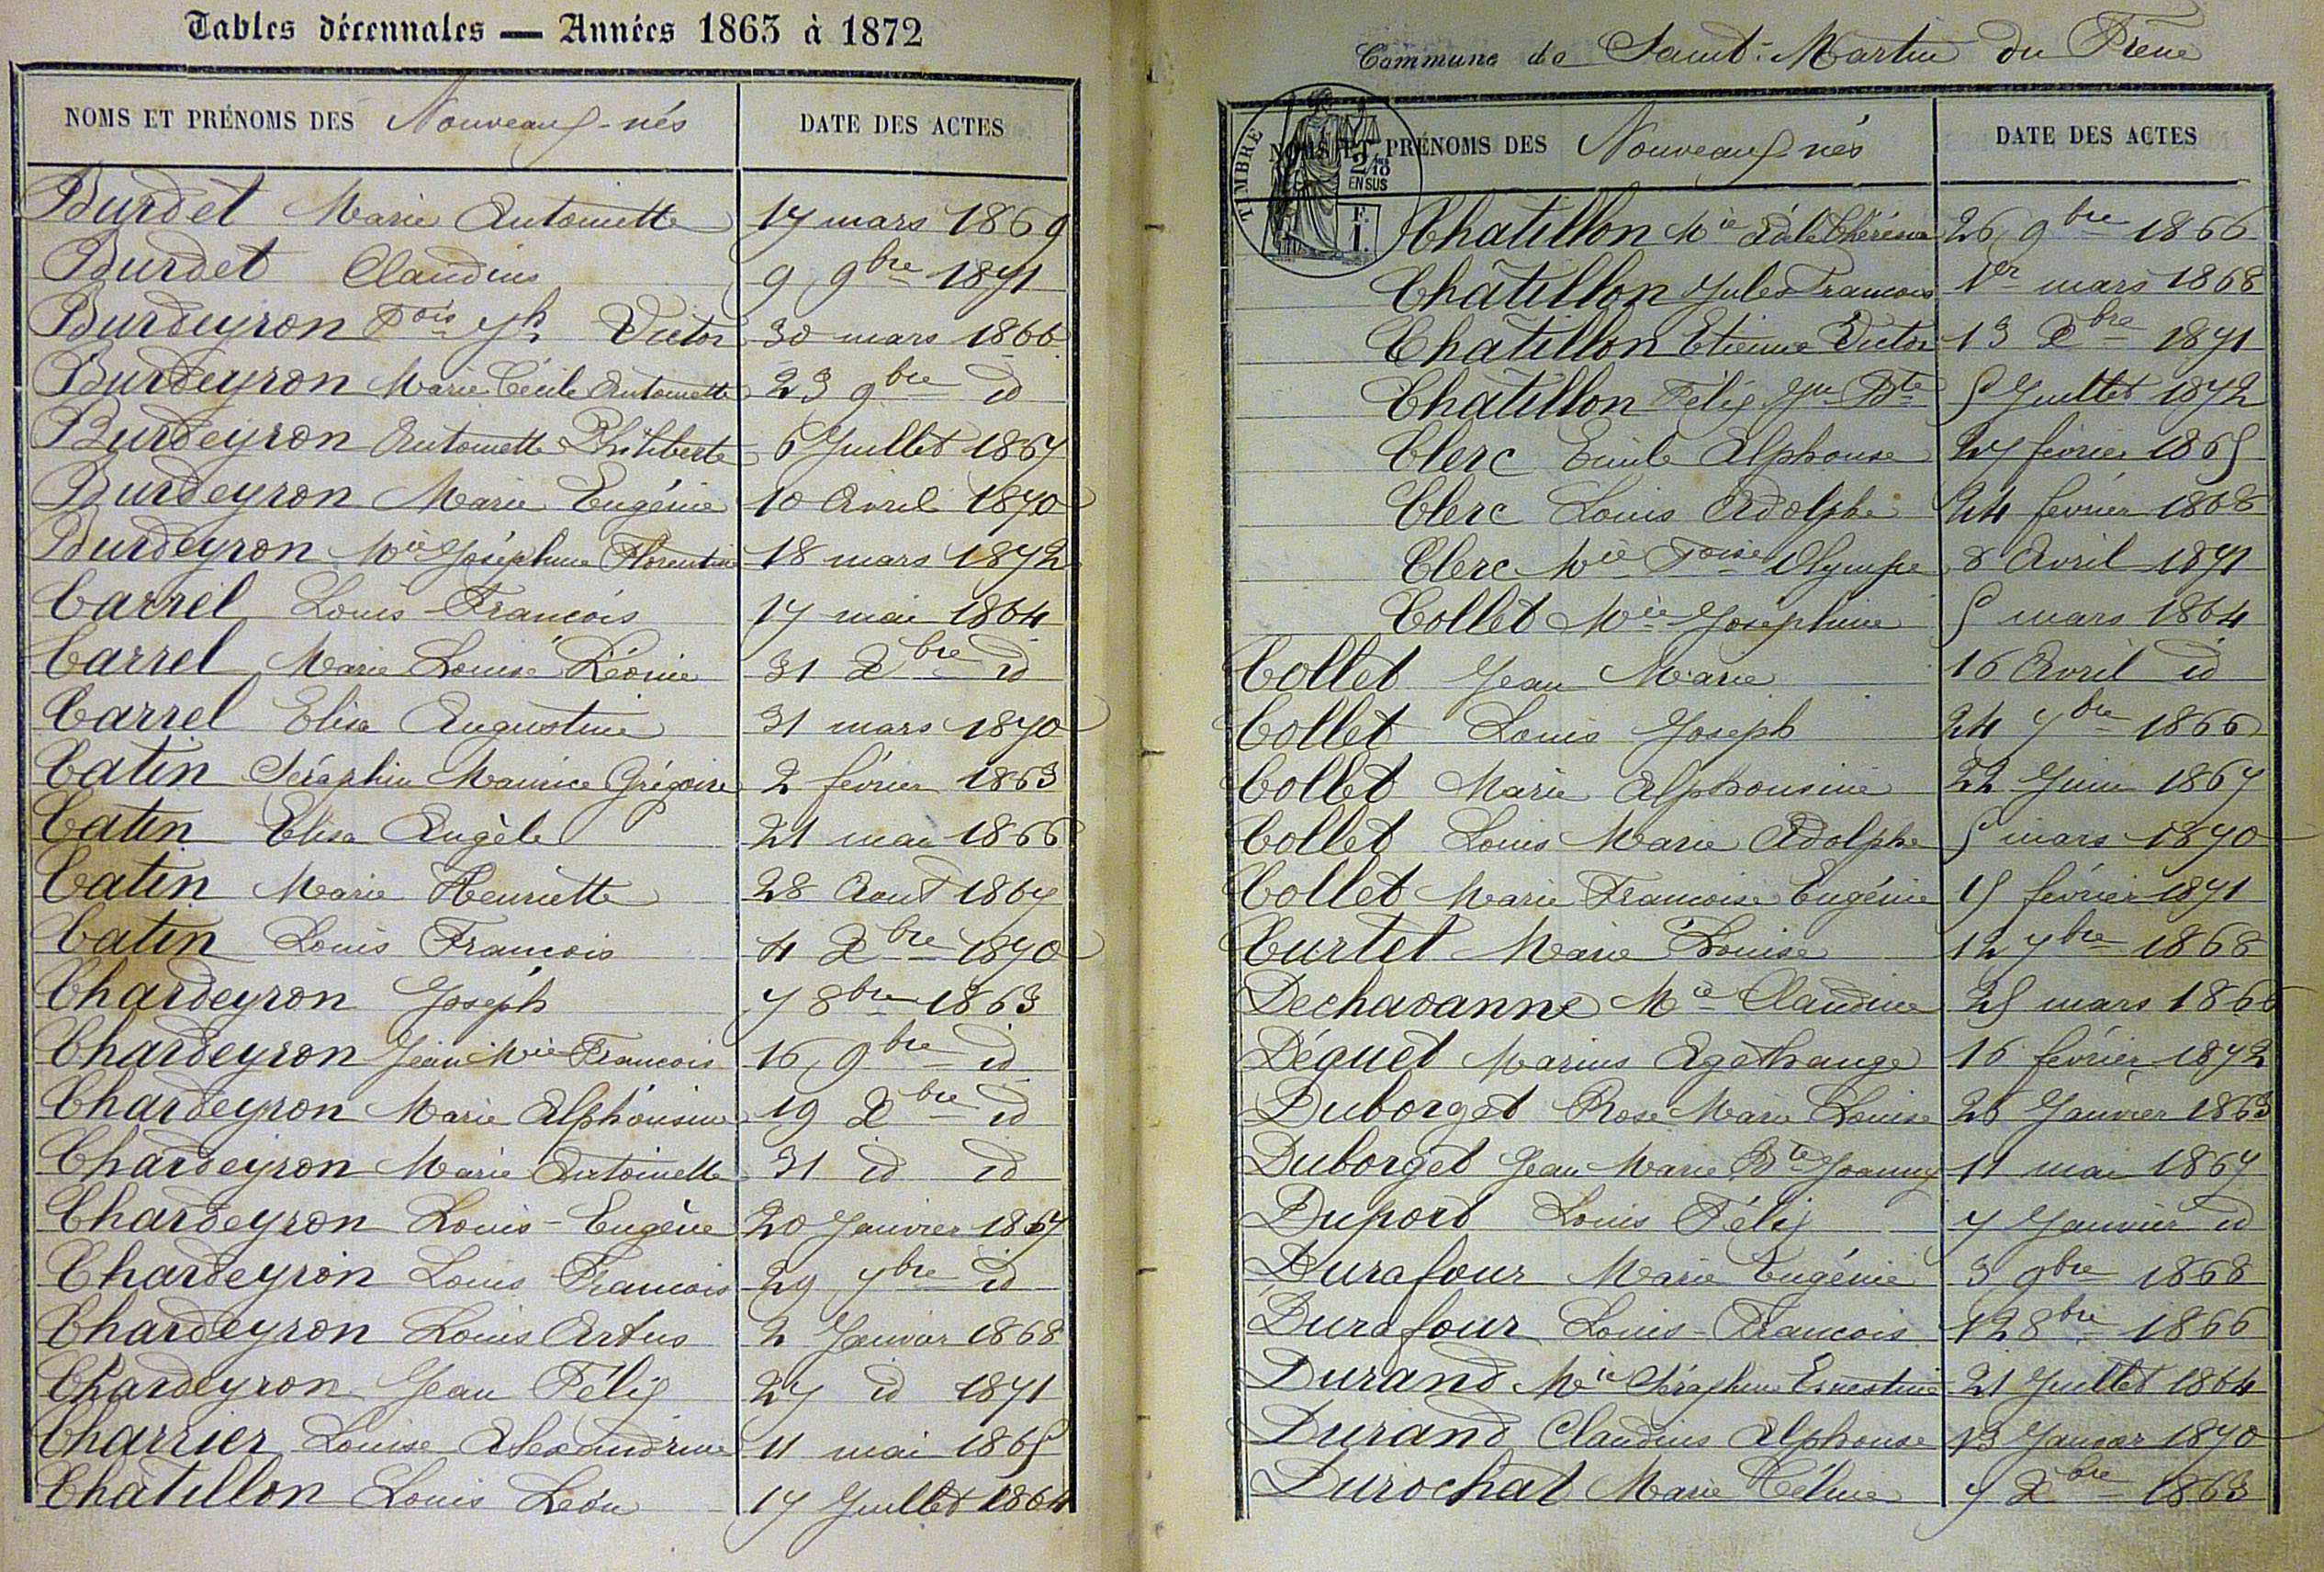 Tables décennales — Années 1863 à 1872
NOMS ET PRÉNOMS DES Nouveaux-nés DATE DES ACTES
Burdet Marie Antoinette 17 mars 1869
Burdet Claudius 9 9bre 1871
Burdeyron Fois Jh Victor 30 mars 1866
Burdeyron Marie Cécile Antoinette 23 9bre id
Burdeyron Antoinette Philiberte 6 Juillet 1867
Burdeyron Marie Eugénie 10 Avril 1870
Burdeyron Mie Joséphine Florentine 18 mars 1872
Carrel Louis François 17 mai 1864
Carrel Marie Louise Léonie 31 Xbre id
Carrel Elisa Augustine 31 mars 1870
Catin Séraphin Maurice Grégoire 2 février 1863
Catin Elisa Angèle 21 mai 1866
Catin Marie Henriette 28 Aout 1867
Catin Louis François 4 Xbre 1870
Chardeyron Joseph 7 8bre 1863
Chardeyron Jean Mie François 16 9bre id
Chardeyron Marie Alphonsine 19 Xbre id
Chardeyron Marie Antoinette 31 id id
Chardeyron Louis-Eugène 20 Janvier 1867
Chardeyron Louis François 29 7bre id
Chardeyron Louis Artus 2 Janvier 1868
Chardeyron Jean Félix 27 id 1871
Charrier Louise Alexandrine 11 mai 1865
Châtillon Louis Léon 17 Juillet 1864
Commune de Saint-Martin du Frene
TIMBRE
2/10
EN SUS
F.
1.
NOMS ET PRÉNOMS DES Nouveaux nés DATE DES ACTES
Chatillon Mie Thérésia 26 9bre 1866
Châtillon Jules François 1er mars 1868
Châtillon Etienne Victor 13 Xbre 1871
Châtillon Félix Jn Bte 5 Juillet 1872
Clerc Emile Alphonse 27 février 1865
Clerc Louis Adolphe 24 février 1868
Clerc Mie Foise Olympe 8 Avril 1871
Collet Mie Joséphine 5 mars 1864
Collet Jean Marie 16 Avril id
Collet Louis Joseph 24 7bre 1866
Collet Marie Alphonsine 22 Juin 1867
Collet Louis Marie Adolphe 5 mars 1870
Collet Marie Françoise Eugénie 15 février 1871
Curtet Marie Louise 12 7bre 1868
Dechavanne Mie Claudine 25 mars 1866
Déguet Marius Agathange 16 février 1872
Duborget Rose Marie Louise 26 Janvier 1863
Duborget Jean Marie Bte Joanny 11 mai 1867
Duport Louis Félix 7 Janvier id
Durafour Marie Eugénie 3 9bre 1868
Durafour Louis-François 12 8bre 1866
Durand Mie Séraphine Ernestine 21 Juillet 1864
Durand Claudius Alphonse 13 Janvier 1870
Durochat Marie Céline 7 Xbre 1863